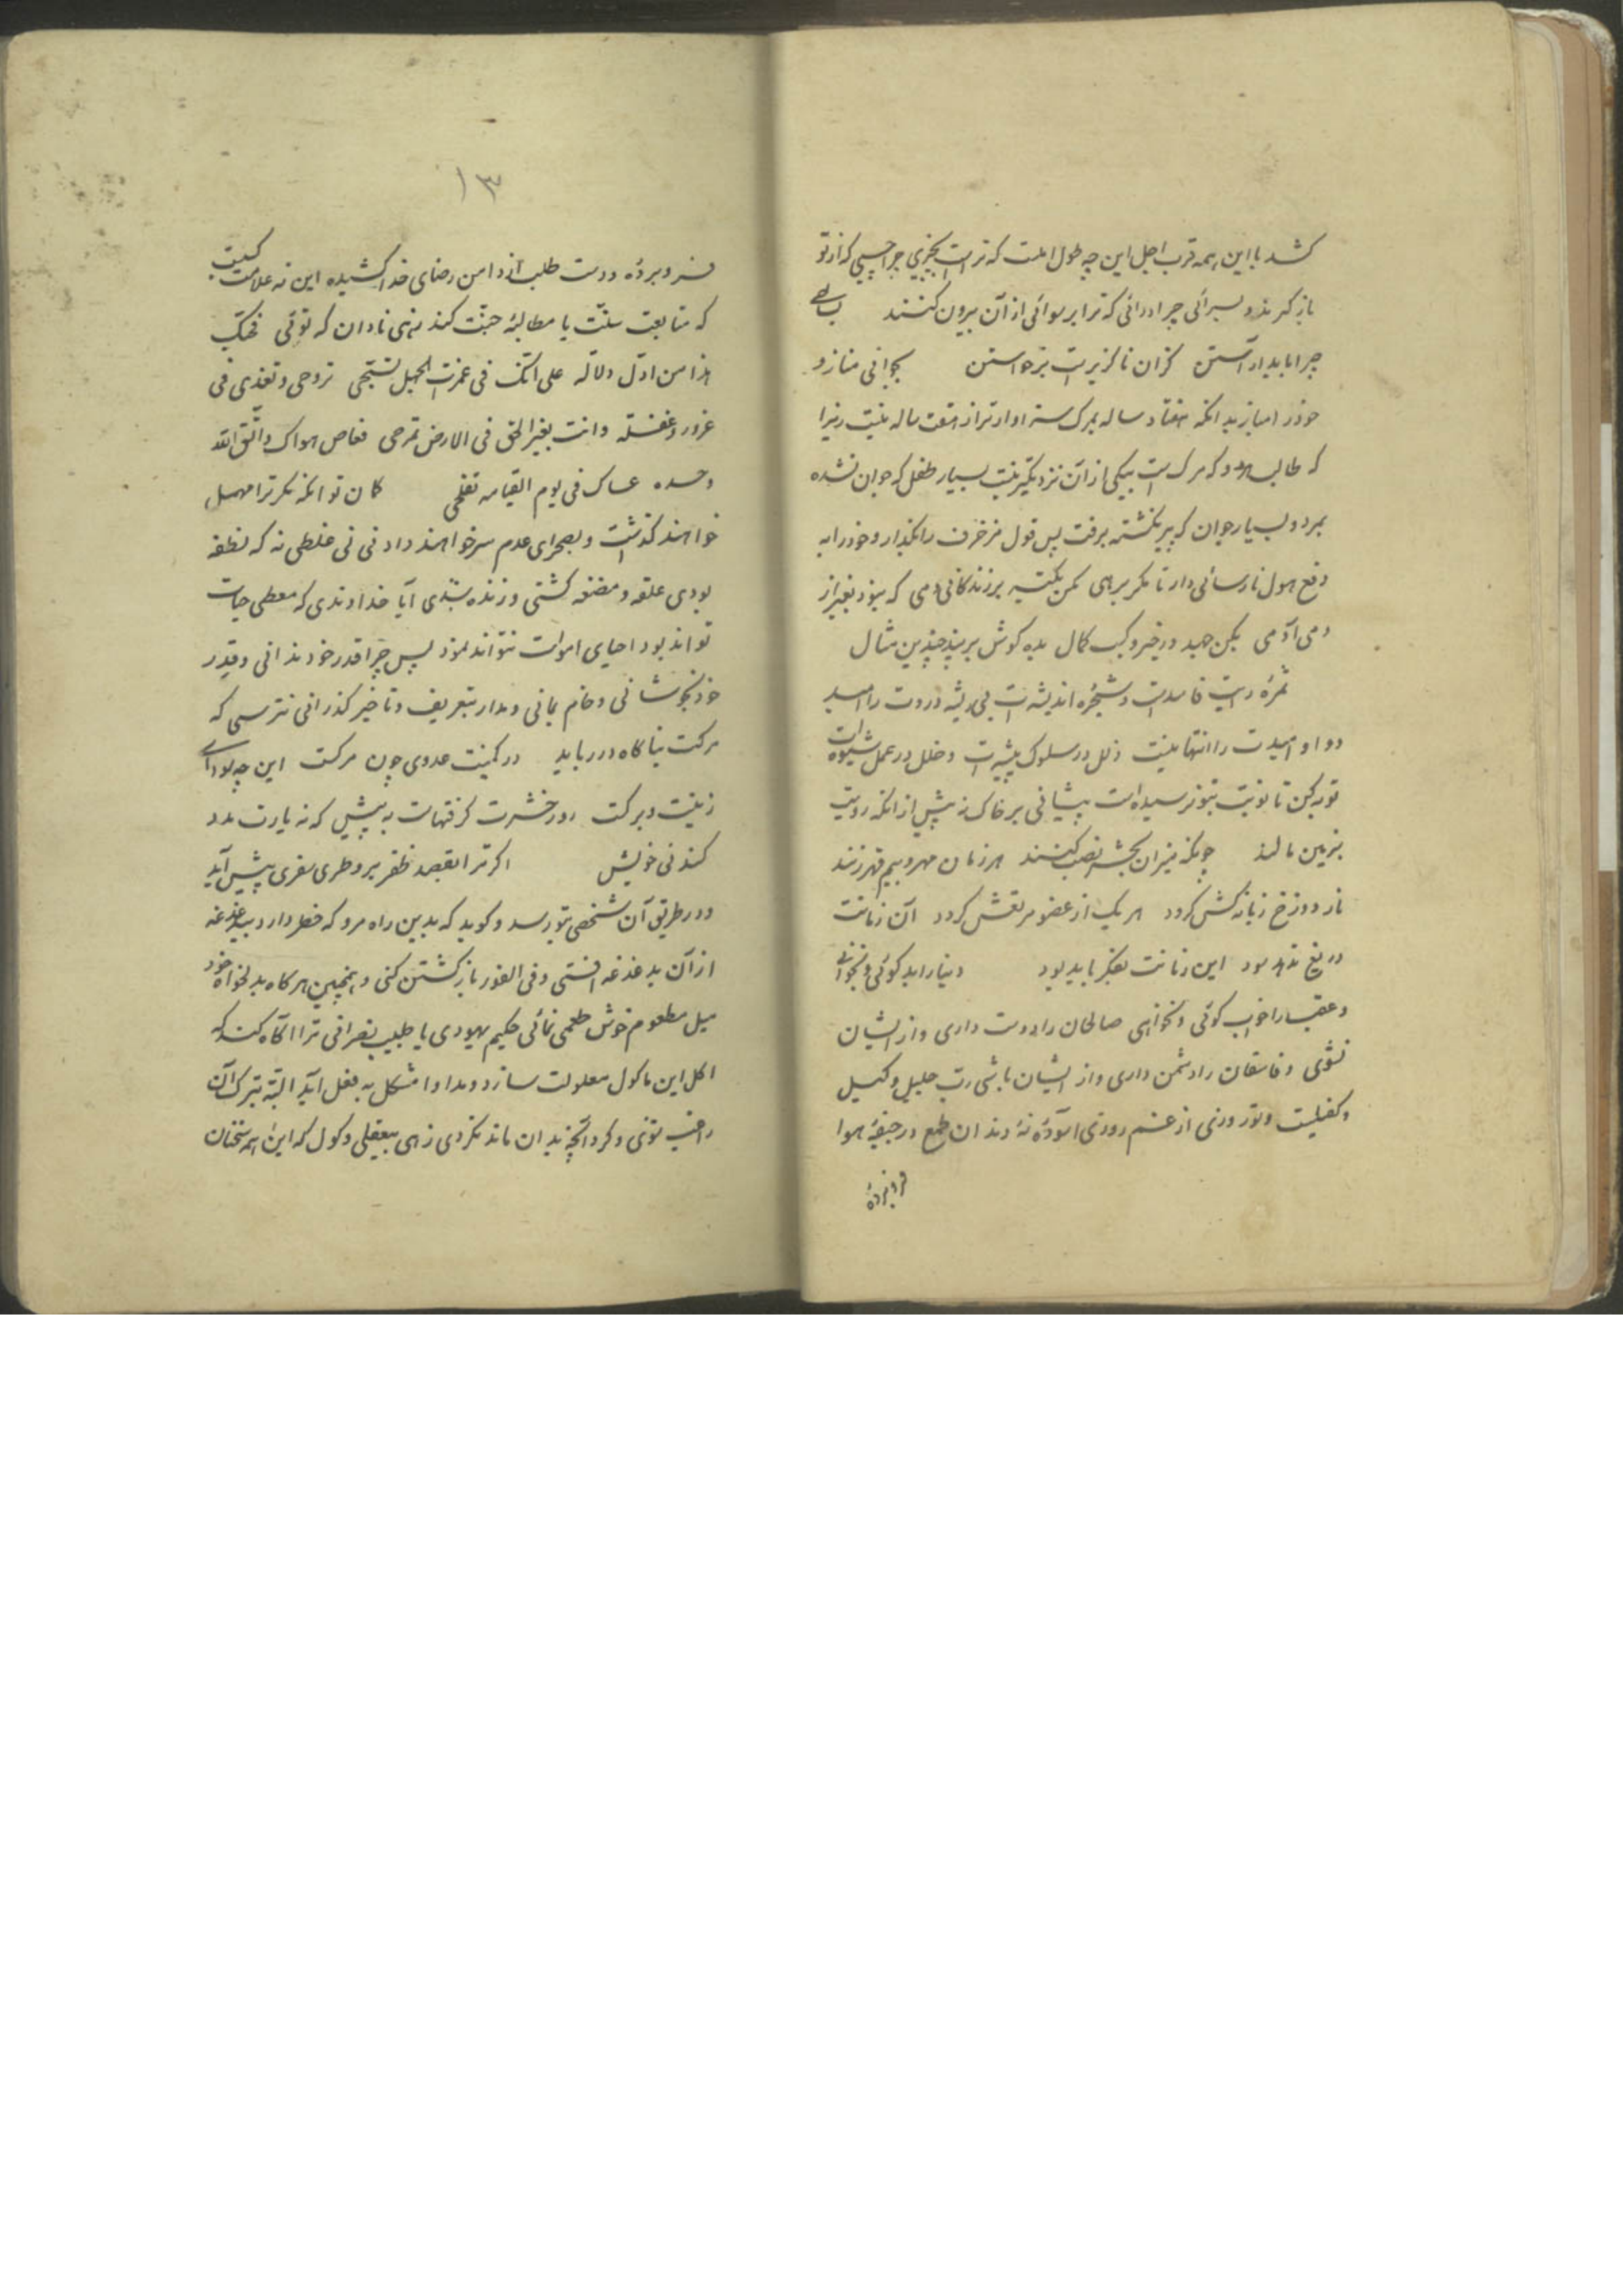 کشد با این همه قرب اجل این چه طول املت که تراست بچیزی چرا چسپی که از تو
باز گیرند و بسرائی چرا در آئی که ترا برسوائی از آن بیرون کنند
چرا باید آراستن کزان ناگزیرست برخواستن بجوانی مناز و
خود را مباز بدانکه هفتاد ساله بمرگ سزاوارتر از هفت ساله نیست زیرا
که طالب هر دو که مرگ است بیکی از آن نزدیکتر نیست بسیار طفل که جوان نشده
بمرد و بسیار جوان که پیر نگشته برفت پس قول مزخرف را بگذار و خود را به
دفع هول نارسائی دار تا مگر برهی مکن تکیه بر زندگانی دمی که نبود بغیر از
دمی آدمی بکن جهد در خیر و کسب کمال بده گوش بر پند چندین مثال
ثمره رایت فاسدست و شجره اندیشه ات بی ریشه دردت را امید
دوا و امیدت را انتها نیست زلل در سلوک پیشه ات و خلل در عمل شیوه ات
توبه کن تا نوبت بتو نرسیده است پیشانی بر خاک نه پیش از آنکه رویت
بزمین مالند چونکه میزان بحشر نصب کنند هر زمان مهر و بیم قهر زنند
نار دوزخ زبانه کش گردد هر یک از عضو مرتعش گردد آن زمانت
دریغ ندهد سود این زمانت بفکر باید بود دنیا را بد گوئی و بخوانی
و عقبی را خوب گوئی و نخواهی صالحان را دوست داری و از ایشان
نشوی و فاسقان را دشمن داری و از ایشان باشی رب جلیل وکیل
و کفیلت و تو روزی از غم روزی آسوده نه دندان طمع در جیفه هوا
فروبرده
۱۳
فروبرده و دست طلب از دامن رضای خدا کشیده این نه علامت کسیت
که متابعت سنت یا مطالبه جنت کند زهی نادان که توئی فحبک
هذا من ادل دلاله علی انک فی غمرت الجهل تروحی و تغذی فی
غرور و غفلة و انت بغیر الحق فی الارض تمرحی فعاص هواک و اتق الله
وحده عساک فی یوم القیامه تفلحی کان تو آنکه مگر ترا مهمل
خواهند گذاشت و بصحرای عدم سر خواهند داد نی نی غلطی نه که نطفه
بودی علقه و مضغه گشتی و زنده شدی آیا خداوندی که معطی حیات
تواند بود احیای اموات نتواند نمود پس چرا قدر خود ندانی و قدر
خود و خام بمانی و مدار بتعریف و تاخیر گذرانی نترسی که
مرگت بناگاه در رباید در کمینت عدوی چون مرگست این چه
زینت و برگت روز حشرت گرفتهات به پیش که نه یارت مدد
کند نی خویش اگر ترا بقصد ظفر بر وطری سفری پیش آید
و در طریق آن شخصی بتو رسد و گوید که بدین راه مرو که خطر دارد بیدغدغه
از آن بدغدغه افتی و فی الفور بازگشتن کنی و همچنین هر گاه بدلخواه خود
میل مطعوم خوش طعمی نمائی حکیم یهودی یا طبیب نصرانی ترا آگاه کند که
اکل این ماکول معلولت سازد و مداوا مشکل به فعل آید البته بترک آن
راغب شوی و گرد آنچه زیدان ماند نگردی زهی بیعقلی و کول که این همه سخنان